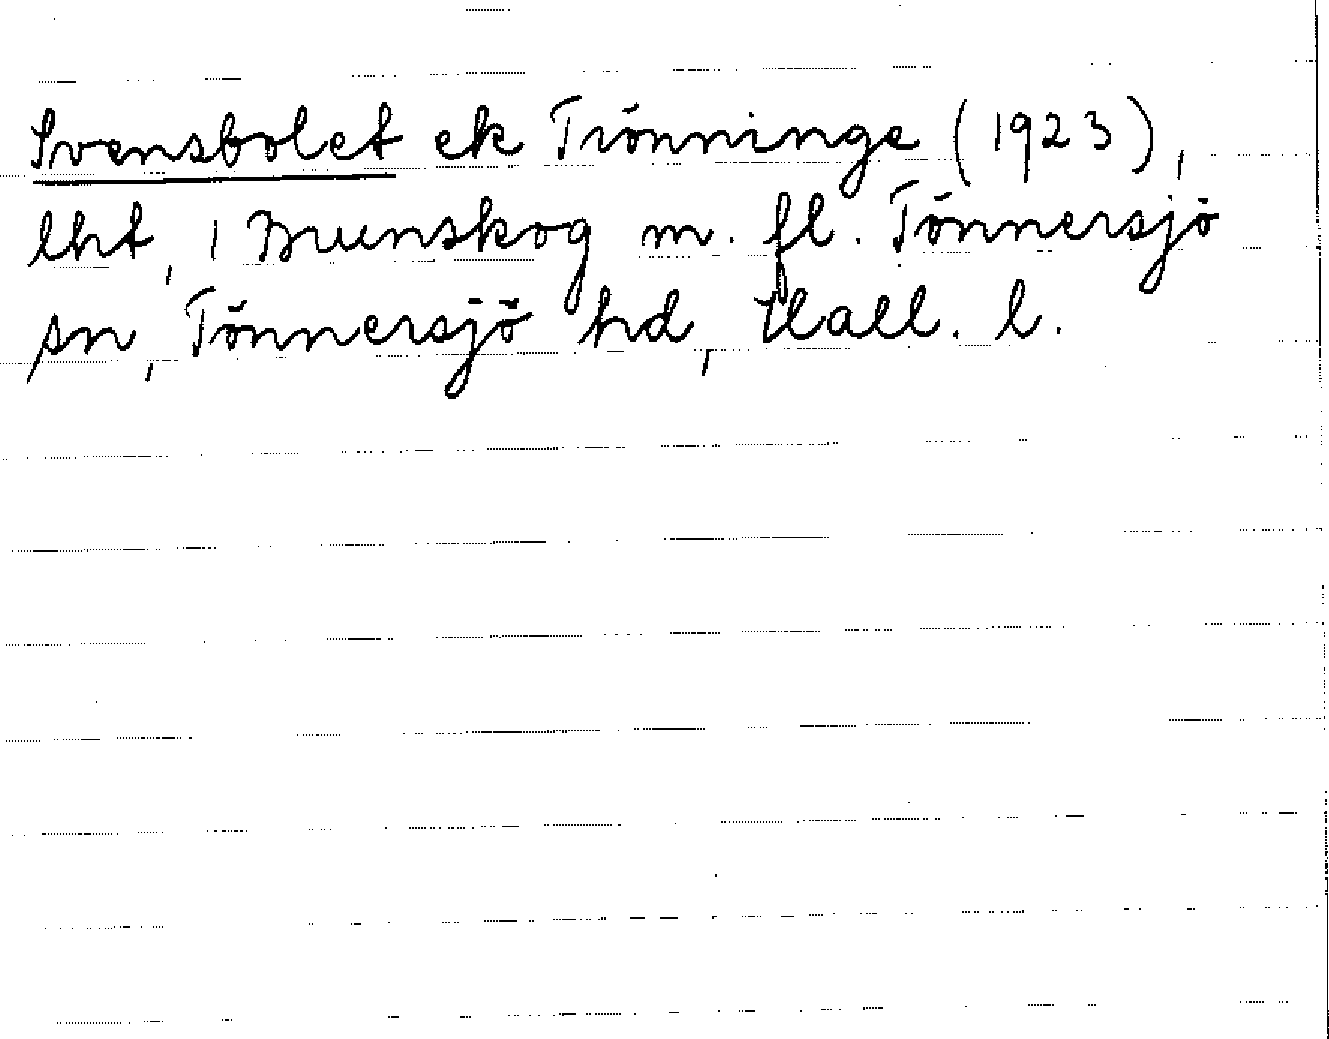 Svensbolet ek Trönninge (1923),
lht, 1 Brunskog m. fl. Tönnersjö
sn, Tönnersjö hd, Hall. l.